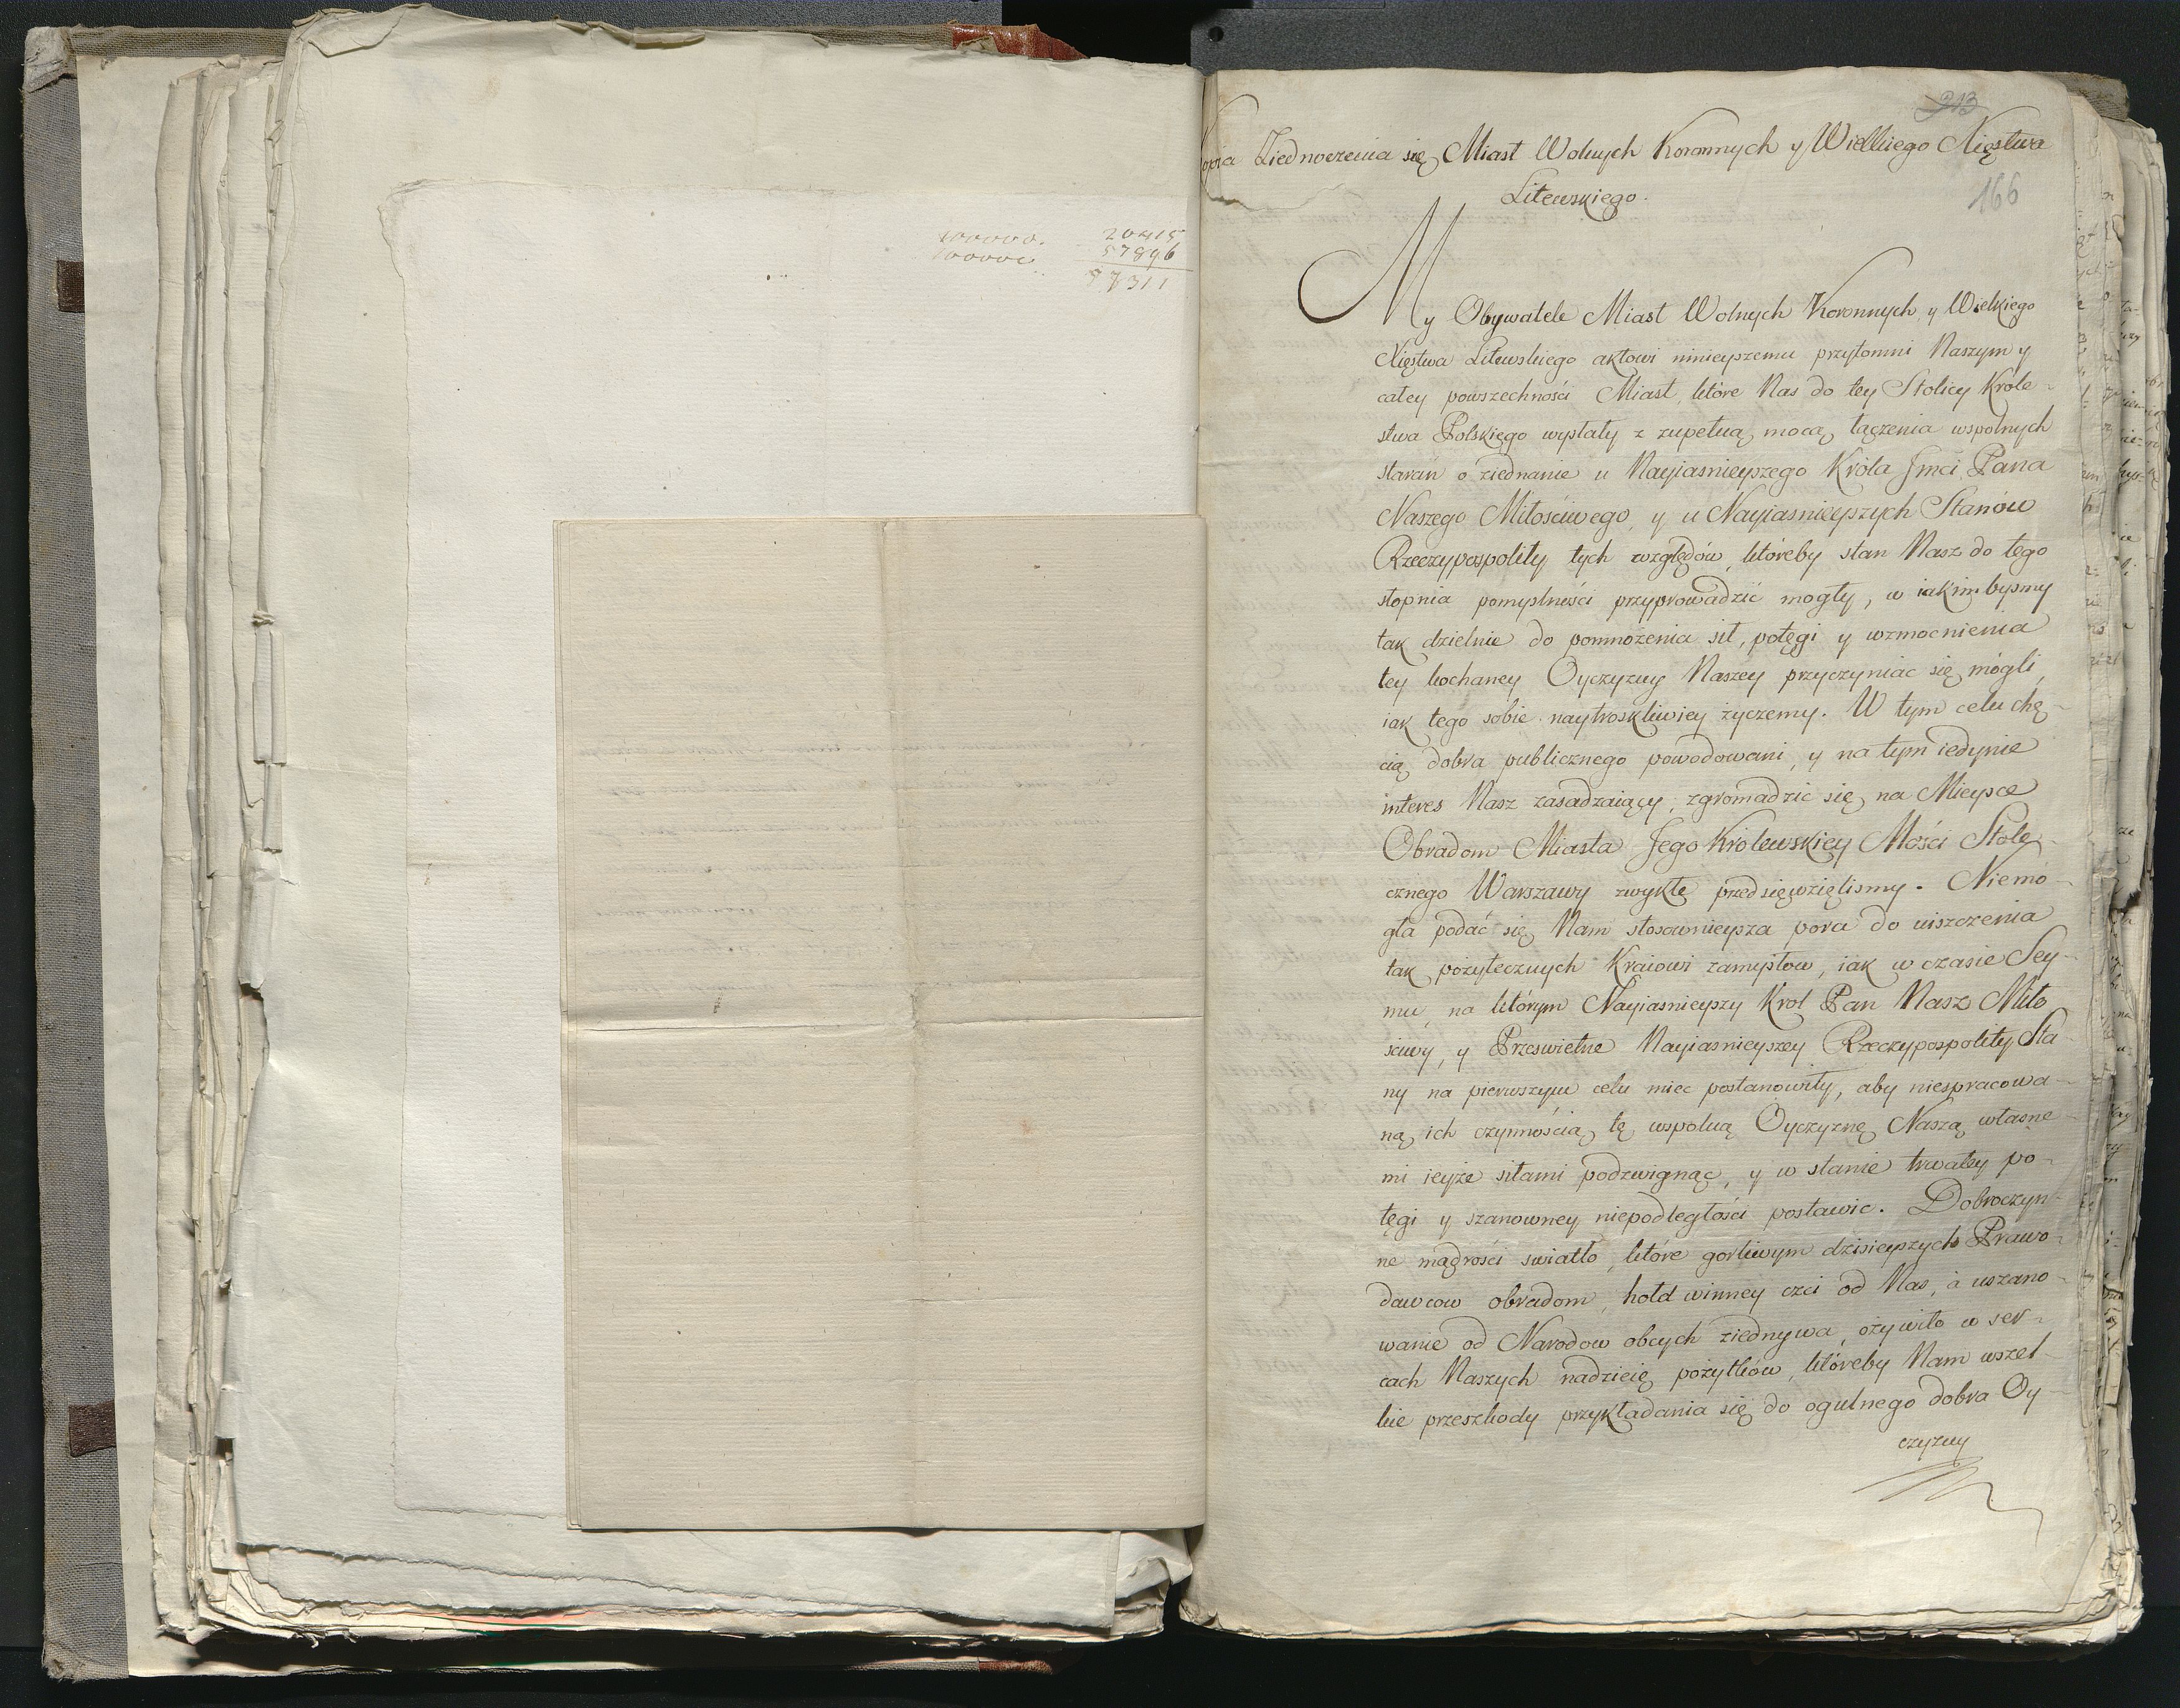 100000. 20415
100000 57896
213
166
Kopia Ziednoczenia się Miast Wolnych Koronnych y Wielkiego Xięstwa
Litewskiego.
My Obywatele Miast Wolnych Koronnych, y Wielkiego
Xięstwa Litewskiego aktowi ninieyszemu przytomni Naszym y
całey powszechności Miast, które Nas do tey Stolicy Krole-
stwa Polskiego wysłały z zupełną mocą łączenia wspolnych
starań o ziednanie u Nayiasnieyszego Króla Jmci Pana
Naszego Miłościwego, y u Nayiasnieyszych Stanów
Rzeczypospolity tych względów, któreby stan Nasz do tego
stopnia pomyslności przyprowadzić mogły, w iakim bysmy
tak dzielnie do pomnożenia sił, potęgi y wzmocnienia
tey kochaney Oyczyzny Naszey przyczyniac się mógli,
iak tego sobie naytroskliwiey życzemy. W tym celu chę-
cią dobra publicznego powodowani, y na tym iedynie
interes Nasz zasadzaiący, zgromadzic się na Mieysce
Obradom Miasta Jego Krolewskiey Mości Stołe-
cznego Warszawy zwykłe przedsięwzięlismy. Niemo-
gła podać się Nam stosownieysza pora do uiszczenia
tak pożytecznych Kraiowi zamysłow, iak w czasie Sey-
mu, na którym Nayiasnieyszy Krol Pan Nasz Miło
sciwy, y Przeswietne Nayiasnieyszey Rzeczypospolity Sta-
ny na pierwszym celu miec postanowiły, aby niespracowa-
ną ich czynnością tę wspolną Oyczyznę Naszą własne-
mi ieyże siłami podzwignąc, y w stanie trwałey po-
tęgi y szanowney niepodległości postawic. Dobroczyn-
ne mądrości swiatło, które gorliwym dzisieyszych Prawo-
dawcow obradom, hołd winney czci od Nas, a uszano-
wanie od Narodow obcych ziednywa, ożywiło w ser-
cach Naszych nadzieię pożytków, któreby Nam wszel-
kie przeszkody przykładania się do ogulnego dobra Oy-
czyzny